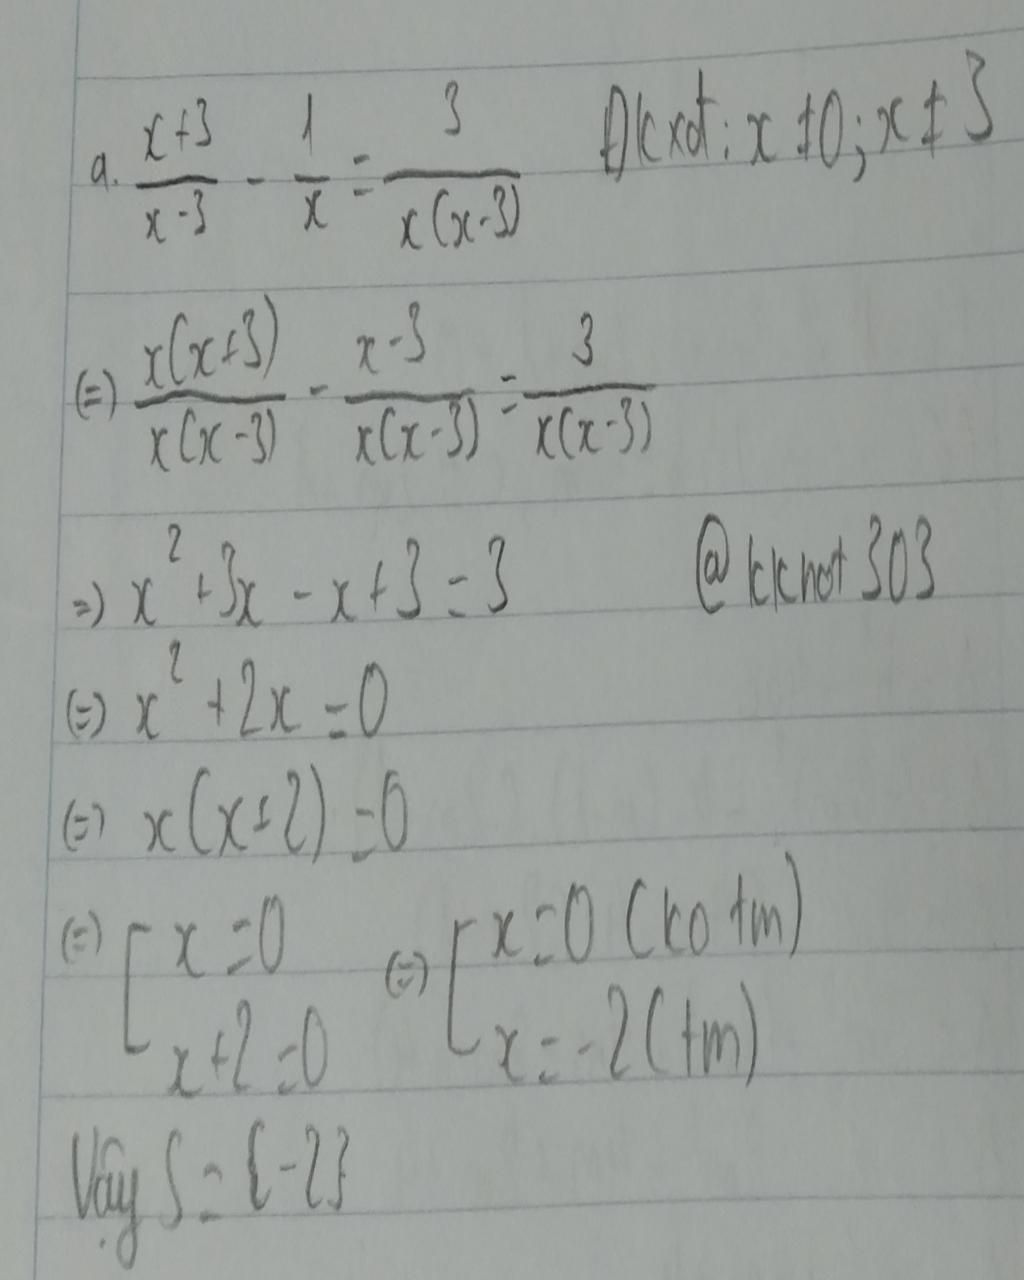 a. \frac{x+3}{x-3} - \frac{1}{x} = \frac{3}{x(x-3)} Đkxđ: x ≠ 0; x ≠ 3
(=) \frac{x(x+3)}{x(x-3)} - \frac{x-3}{x(x-3)} = \frac{3}{x(x-3)}
=) x² + 3x - x + 3 = 3
@kkhot303
(=) x² + 2x = 0
(=) x(x+2) = 0
(=) [ x = 0 (=) [ x = 0 (ko tm)
x+2 = 0 x = -2 (tm)
Vậy S = {-2}